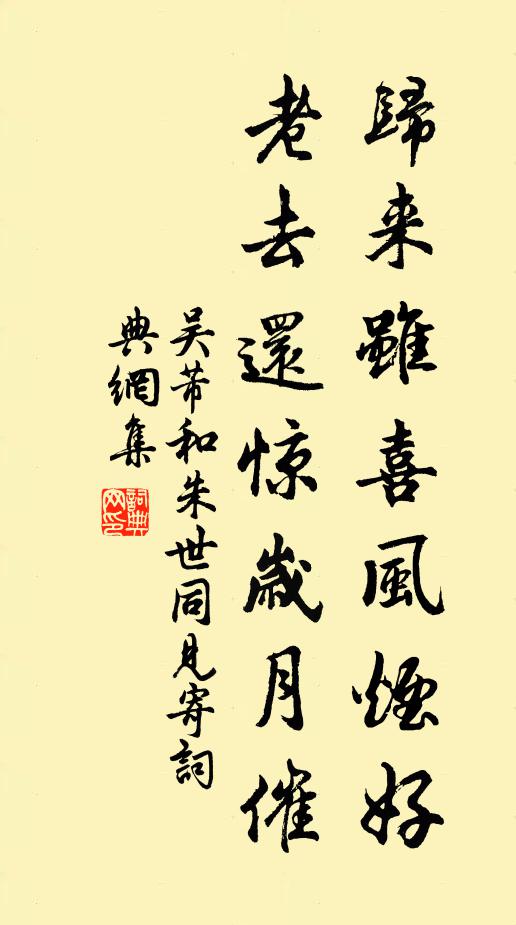 歸来雖喜風煙好
老去還惊歲月催
吴芾和朱世同見寄詞
典網集
詞典網印